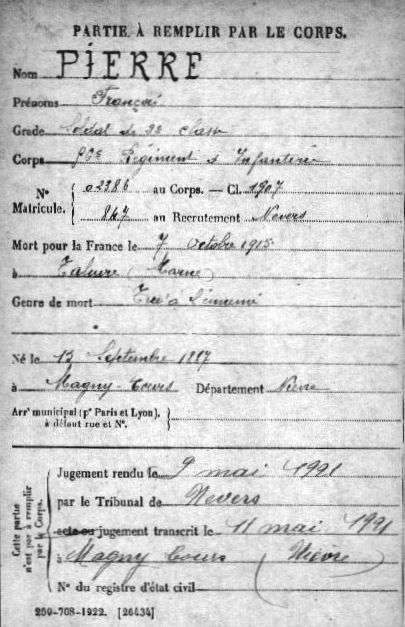 PARTIE À REMPLIR PAR LE CORPS.
Nom PIERRE
Prénoms François
Grade Soldat de 2e classe
Corps Régiment d'Infanterie
N° Matricule. { 02386 au Corps. — Cl. 1907
847 au Recrutement Nevers
Mort pour la France le 7 octobre 1915
à Tahure (Marne)
Genre de mort Tué à l'ennemi
Né le 13 Septembre 1887
à Magny-Cours Département Nièvre
Arr¹ municipal (pʳ Paris et Lyon),
à défaut rue et N°. }
Cette partie n'est pas à remplir par le Corps.
Jugement rendu le 9 mai 1921
par le Tribunal de Nevers
acte ou jugement transcrit le 11 mai 1921
à Magny Cours (Nièvre)
N° du registre d'état civil
259-708-1922. [26434]